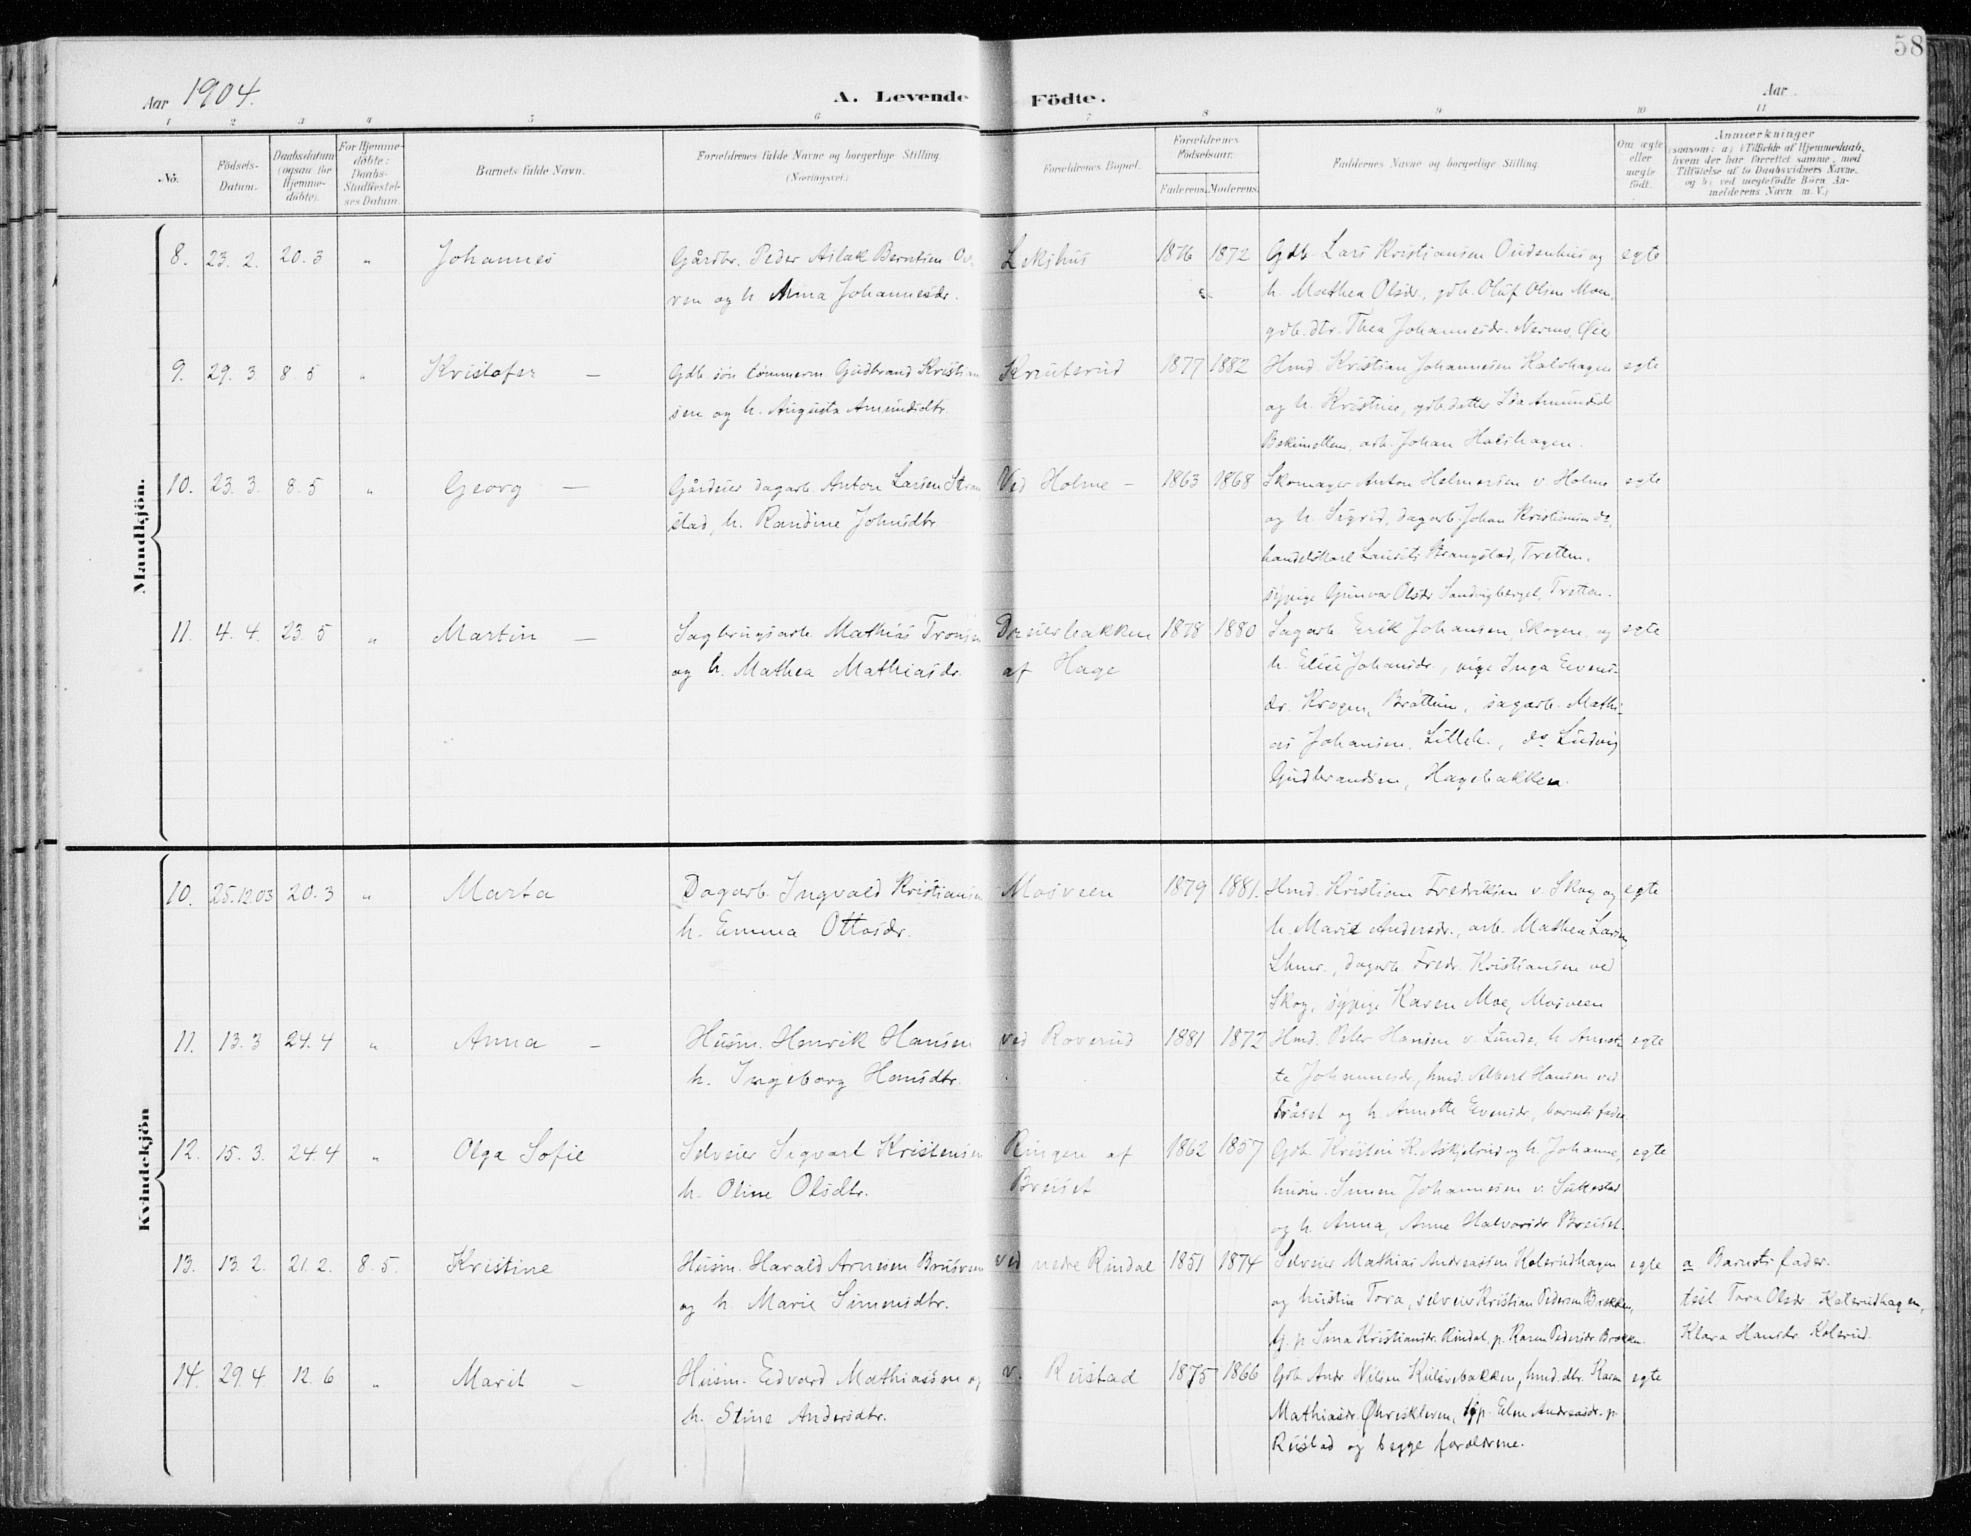 58
Aar 1904.
A. Levende Födte.
Aar
1 2 3 4 5 6 7 8 9 10 11
No.
Födsels-Datum.
Daabsdatum (ogsaa for Hjemmedöbte).
For Hjemmedöbte: Daabs-Stadfæstelses Datum.
Barnets fulde Navn.
Forældrenes fulde Navne og borgerlige Stilling. (Næringsvei.)
Forældrenes Bopæl.
Forældrenes Födselsaar.
Faderens. Moderens.
Faddernes Navne og borgerlige Stilling.
Om ægte eller uægte födt.
Anmærkninger
(saasom: a) i Tilfælde af Hjemmedaab, hvem der har forrettet samme, med Tilföielse af to Daabsvidners Navne, og b) ved uægtefödte Börn Anmelderens Navn m. V.)
Mandkjön.
8. 23. 2. 20. 3 " Johannes
Gårdbr. Peder Aslak Berntsen
og h. Anna Johannesdr.
Lekshus 1876 1872
Gdb. Lars Kristiansen Ouidenhus og
h. Mathea Olsdr., gdb. Oluf Olsen Moen,
gdb. dtr. Thea Johannesdr. Nermo, Öier
egte
9. 29. 3 8. 5 " Kristofer —
Gdb. sön tömmerm. Gudbrand Kristian
sen og h. Augusta Amundsdtr.
Knutsrud 1877 1882
Hmd. Kristian Johannesen Kalvhagen
og h. Kristine, gdb. datter Amundsdr.
arb. Johan
egte
10. 23. 3. 8. 5 " Georg —
Gårdeier dagarb. Anton Larsen Stran
stad, h. Randine Johnsdtr.
Ved Holme - 1863 1868
Skomager Anton Helmersen v. Holme
og h. Sigrid, dagarb. Johan Kristiansen ds,
handelskarl Laurits Brangstad, Tretten.
sypige Gunvor Olsdr Sandvigberget, Tretten.
egte
11. 4. 4. 23. 5 " Martin —
Sagbrugsarb. Mathias Tronsen
og h. Mathea Mathiasdr.
Dreierbakken
af Hage
1878 1880
Sagarb. Erik Johansen, Skogen, og
h. Elise Johansdr., pige Inga Evens-
dr. Krogen, Bröttum, sagarb. Mathi-
as Johansen, Lilleh., do Ludvig
Gudbrandsen, Hagebakken.
egte
Kvindekjön
10. 25. 12 03 20. 3 " Marta
Dagarb. Ingvald Kristiansen
h. Emma Ottosdr.
Mosveen 1879 1881.
Hmd. Kristian Fredriksen v. Skog og
h. Marit Andersdr., arb. Mathea Larsen,
Lhmr., dagarb. Fredr. Kristiansen ved
Skog, sypige Karen Moe, Mosveen
egte
11. 13. 3 24. 4 " Anna —
Husm. Henrik Hansen
h. Ingeborg Hansdtr.
ved Roverud 1881 1872
Hmd. Peter Hansen v. Lunde, h. Annet
te Johannesdr, hmd. Albert Hansen ved
Fråset og h. Annette Evensdr, barnets fader
egte
12. 15. 3. 24. 4 " Olga Sofie
Selveier Sigvart Kristensen
h. Oline Olsdtr.
Ringen af
Breiset
1862 1857
Gdb. Kristen K. Askjelsrud og h. Johanne,
husm. Simen Johannesen v.
og h. Anna, Anne Halvorsdr Breiset.
egte
13. 13. 2. 21. 2. 8. 5. Kristine
Husm. Harald Arnesen Brusveen
og h. Marie Simensdtr.
ved nedre Rindal 1851 1874
Selveier Mathias Andreassen Kolsrudhagen
og hustru Tora, selveier Kristian Pedersen Brækken,
tj. p. Sina Kristiansdr. Rindal, p. Karen Pedersdr Brækken.
egte
a Barnets fader.
test. Tora Olsdr. Kolsrudhagen,
Klara Hansdr. Kolsrud.
14. 29. 4 12. 6 " Marit —
Husm. Edvard Mathiassen og
h. Stine Andersdtr.
v. Rustad 1875 1866
Gdb. Andr. Nilsen Kulsvebakken, hmd. dtr. Karen
Mathiasdr. Öhreskleven, tjp. Elen Andreasdr. p.
Rustad og begge foreldrene.
egte